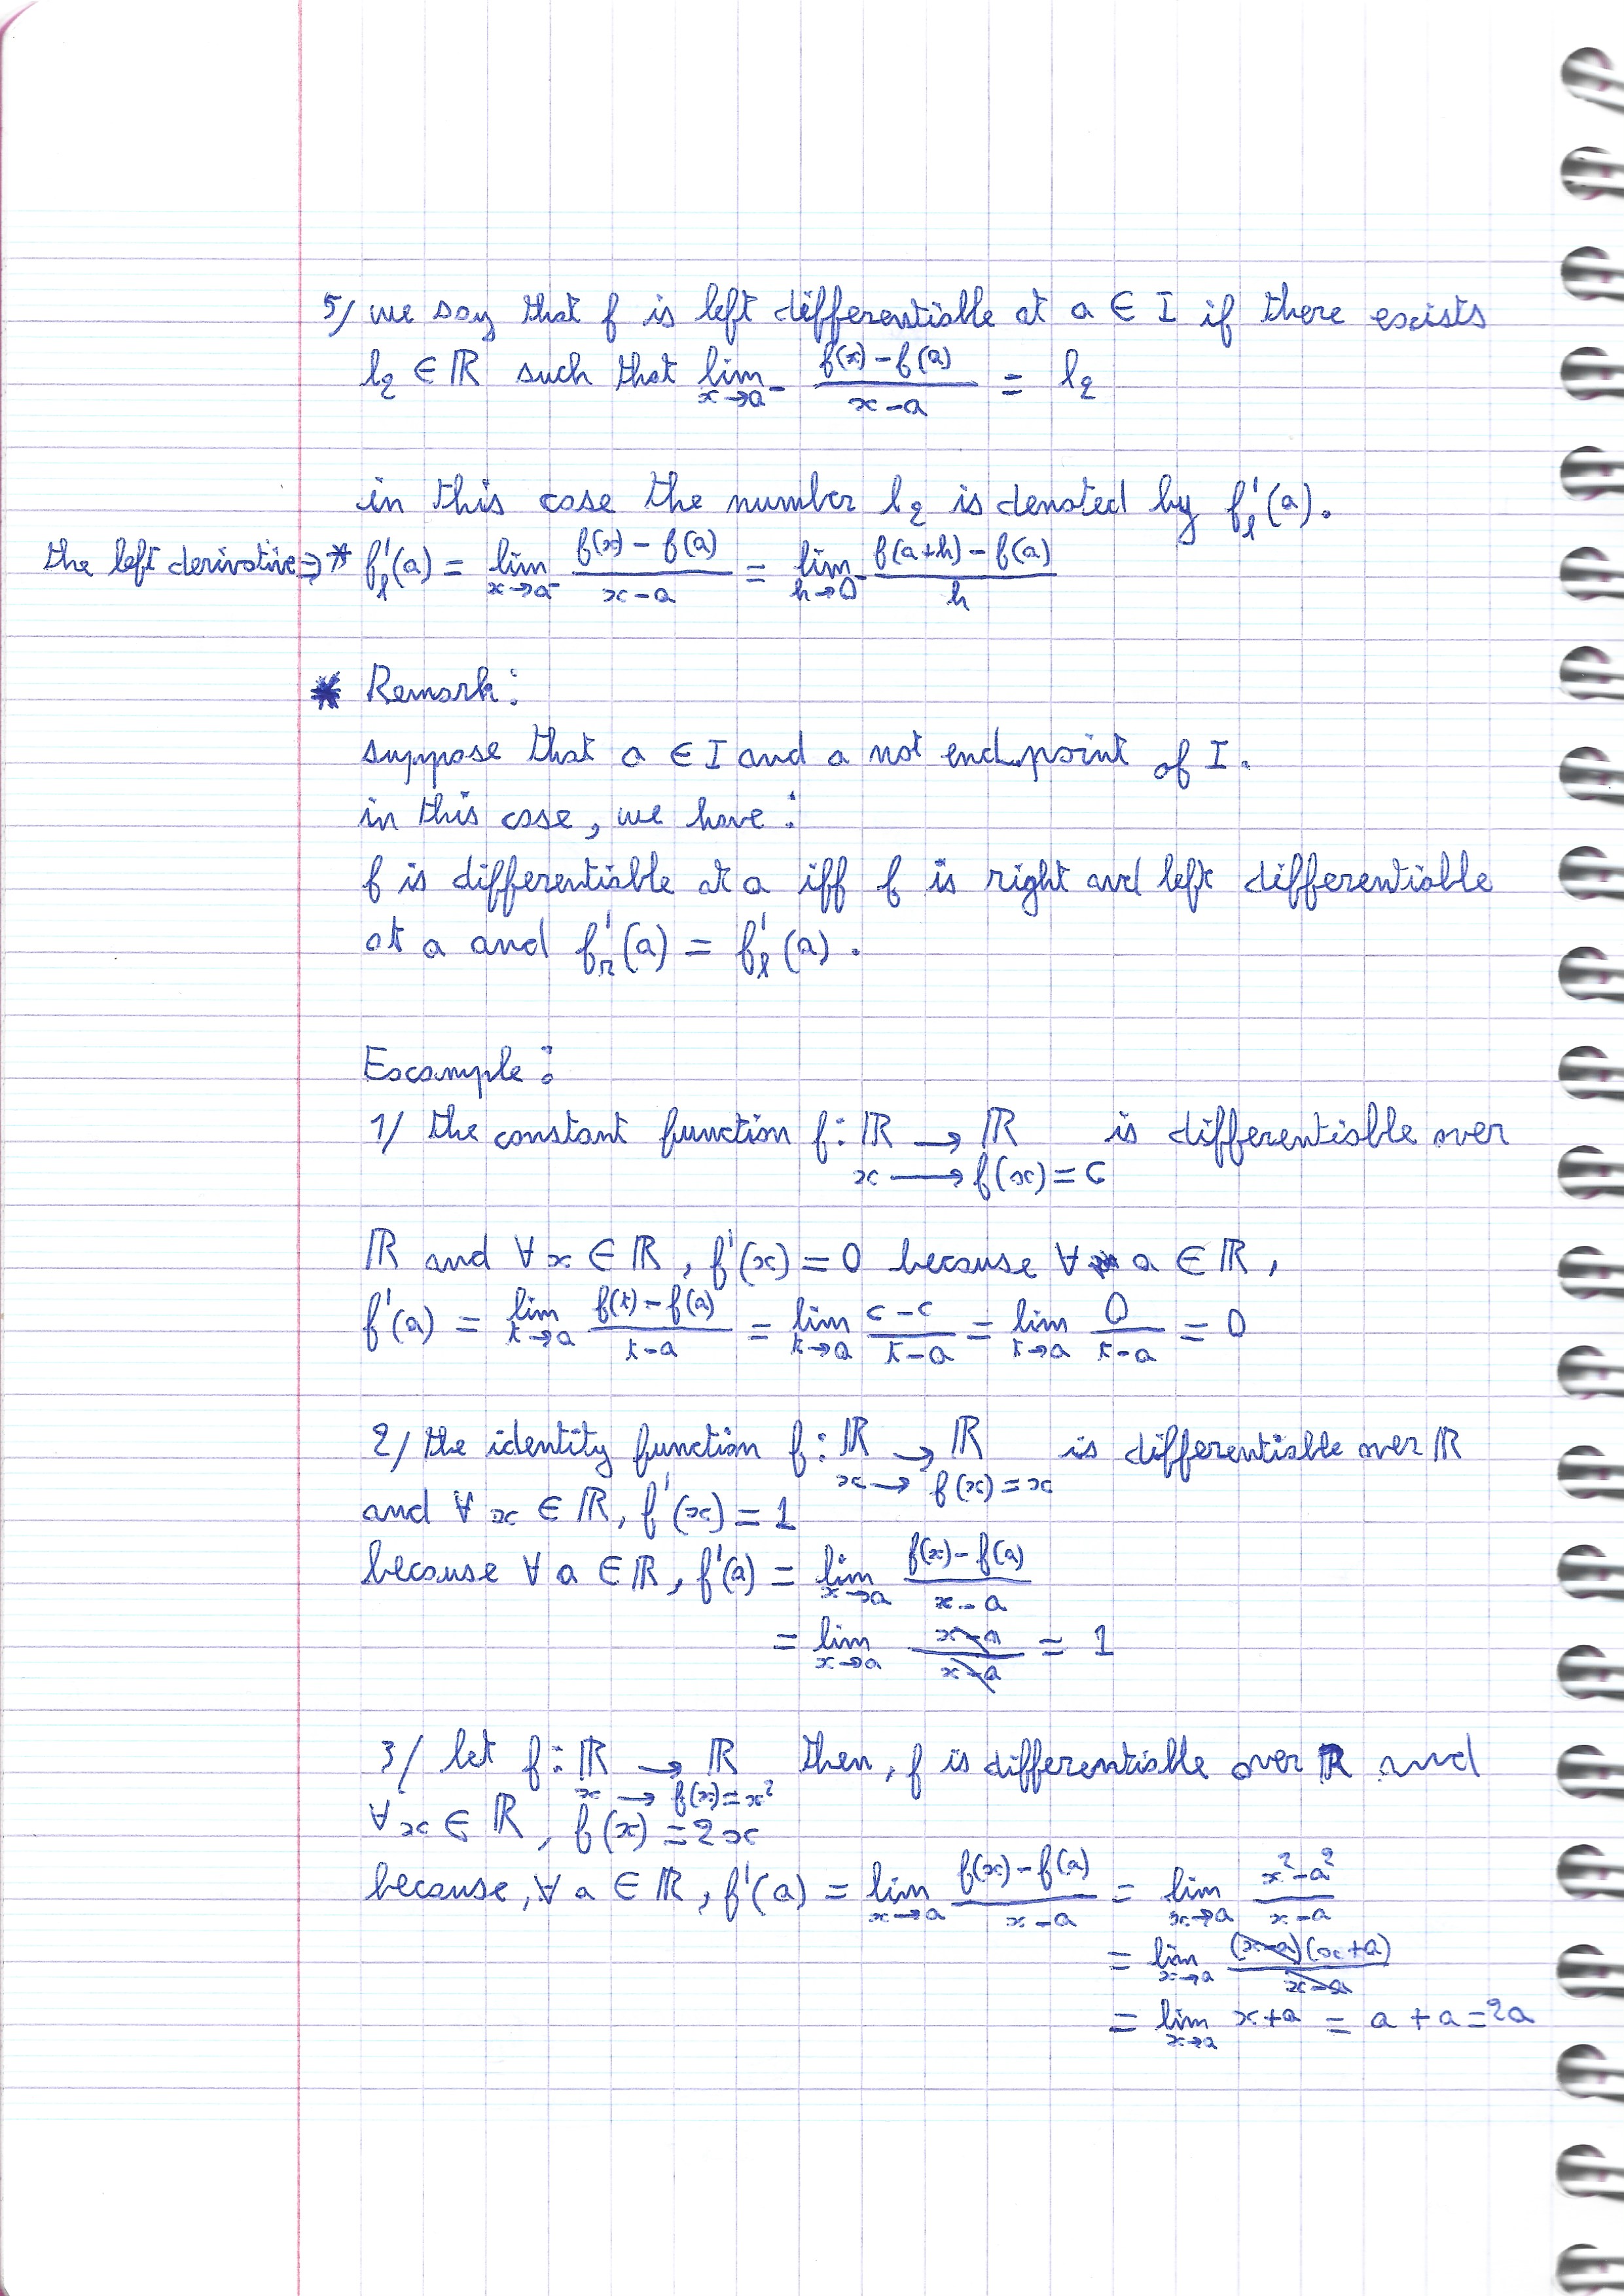 5/ we say that f is left differentiable at a ∈ I if there exists
l₂ ∈ ℝ such that lim_{x→a⁻} (f(x) - f(a))/(x - a) = l₂
in this case the number l₂ is denoted by f'_l(a).
the left derivative ⇒ * f'_l(a) = lim_{x→a⁻} (f(x) - f(a))/(x - a) = lim_{h→0⁻} (f(a+h) - f(a))/h
* Remark:
suppose that a ∈ I and a not end point of I.
in this case, we have:
f is differentiable at a iff f is right and left differentiable
at a and f'_r(a) = f'_l(a).
Example:
1/ the constant function f: ℝ → ℝ is differentiable over
x → f(x) = c
ℝ and ∀ x ∈ ℝ, f'(x) = 0 because ∀ a ∈ ℝ,
f'(a) = lim_{t→a} (f(t) - f(a))/(t - a) = lim_{t→a} (c - c)/(t - a) = lim_{t→a} 0/(t - a) = 0
2/ the identity function f: ℝ → ℝ is differentiable over ℝ
x → f(x) = x
and ∀ x ∈ ℝ, f'(x) = 1
because ∀ a ∈ ℝ, f'(a) = lim_{x→a} (f(x) - f(a))/(x - a)
= lim_{x→a} (x - a)/(x - a) = 1
3/ let f: ℝ → ℝ then, f is differentiable over ℝ and
x → f(x) = x²
∀ x ∈ ℝ, f(x) = 2x
because, ∀ a ∈ ℝ, f'(a) = lim_{x→a} (f(x) - f(a))/(x - a) = lim_{x→a} (x² - a²)/(x - a)
= lim_{x→a} (x - a)(x + a)/(x - a)
= lim_{x→a} x + a = a + a = 2a